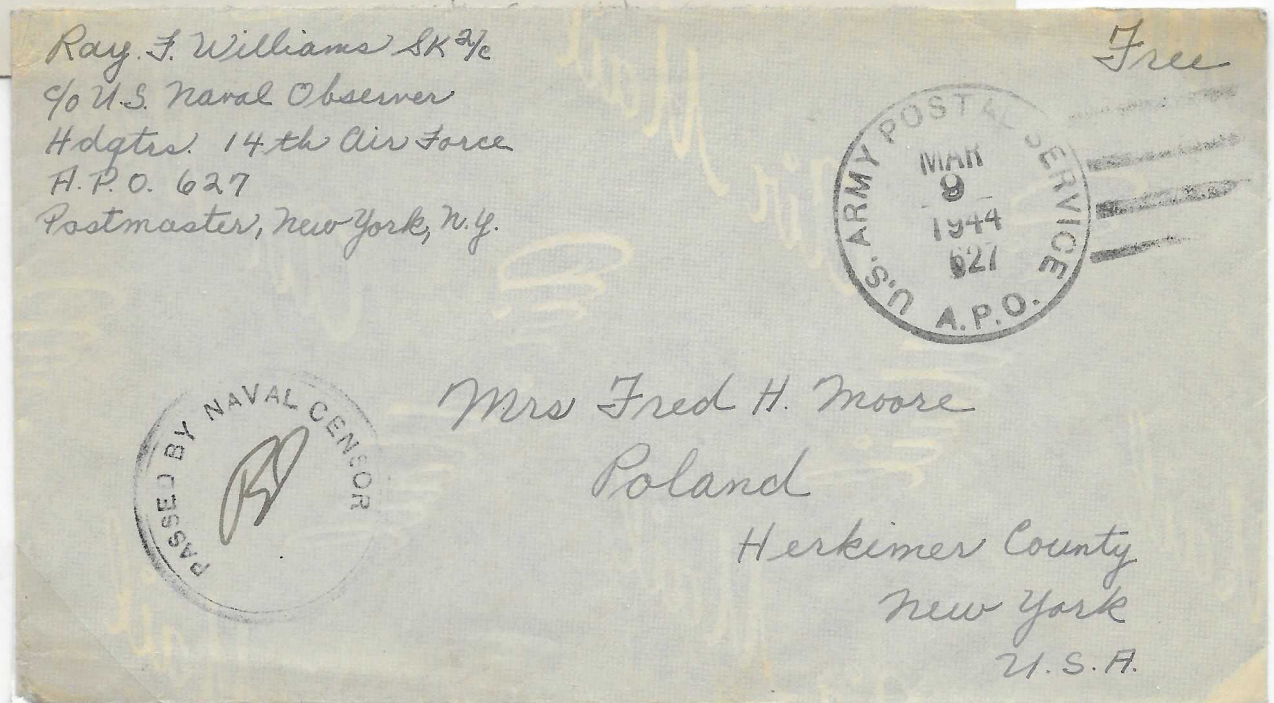 Ray. F. Williams SK 2/c
c/o U.S. Naval Observer
Hdqtrs. 14th Air Force
A.P.O. 627
Postmaster, New York, N.Y.
Free
U.S. ARMY POSTAL SERVICE
MAR
9
1944
627
A.P.O.
PASSED BY NAVAL CENSOR
Mrs Fred H. Moore
Poland
Herkimer County
New York
U.S.A.